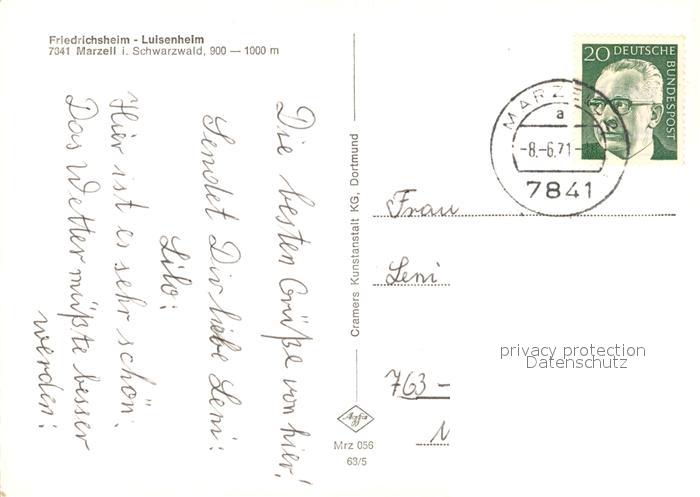 Friedrichsheim - Luisenheim
7841 Marzell i. Schwarzwald, 900 — 1000 m
Die besten Grüße von hier!
Sendet Dir liebe Leni!
Lilo!
Hier ist es sehr schön!
Das Wetter müßte besser
werden!
Cramers Kunstanstalt KG, Dortmund
Agfa
Mrz 056
63/5
20 DEUTSCHE
BUNDESPOST
MARZELL
a
-8.-6.71-
7841
Frau
Leni
privacy protection
Datenschutz
763 -